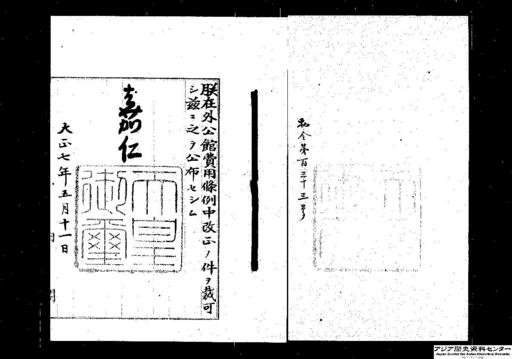 勅令第百三十三号
朕在外公館費用條例中改正ノ件ヲ裁可
シ茲ニ之ヲ公布セシム
嘉仁
天皇御璽
大正七年五月十一日
アジア歴史資料センター
Japan Center for Asian Historical Records